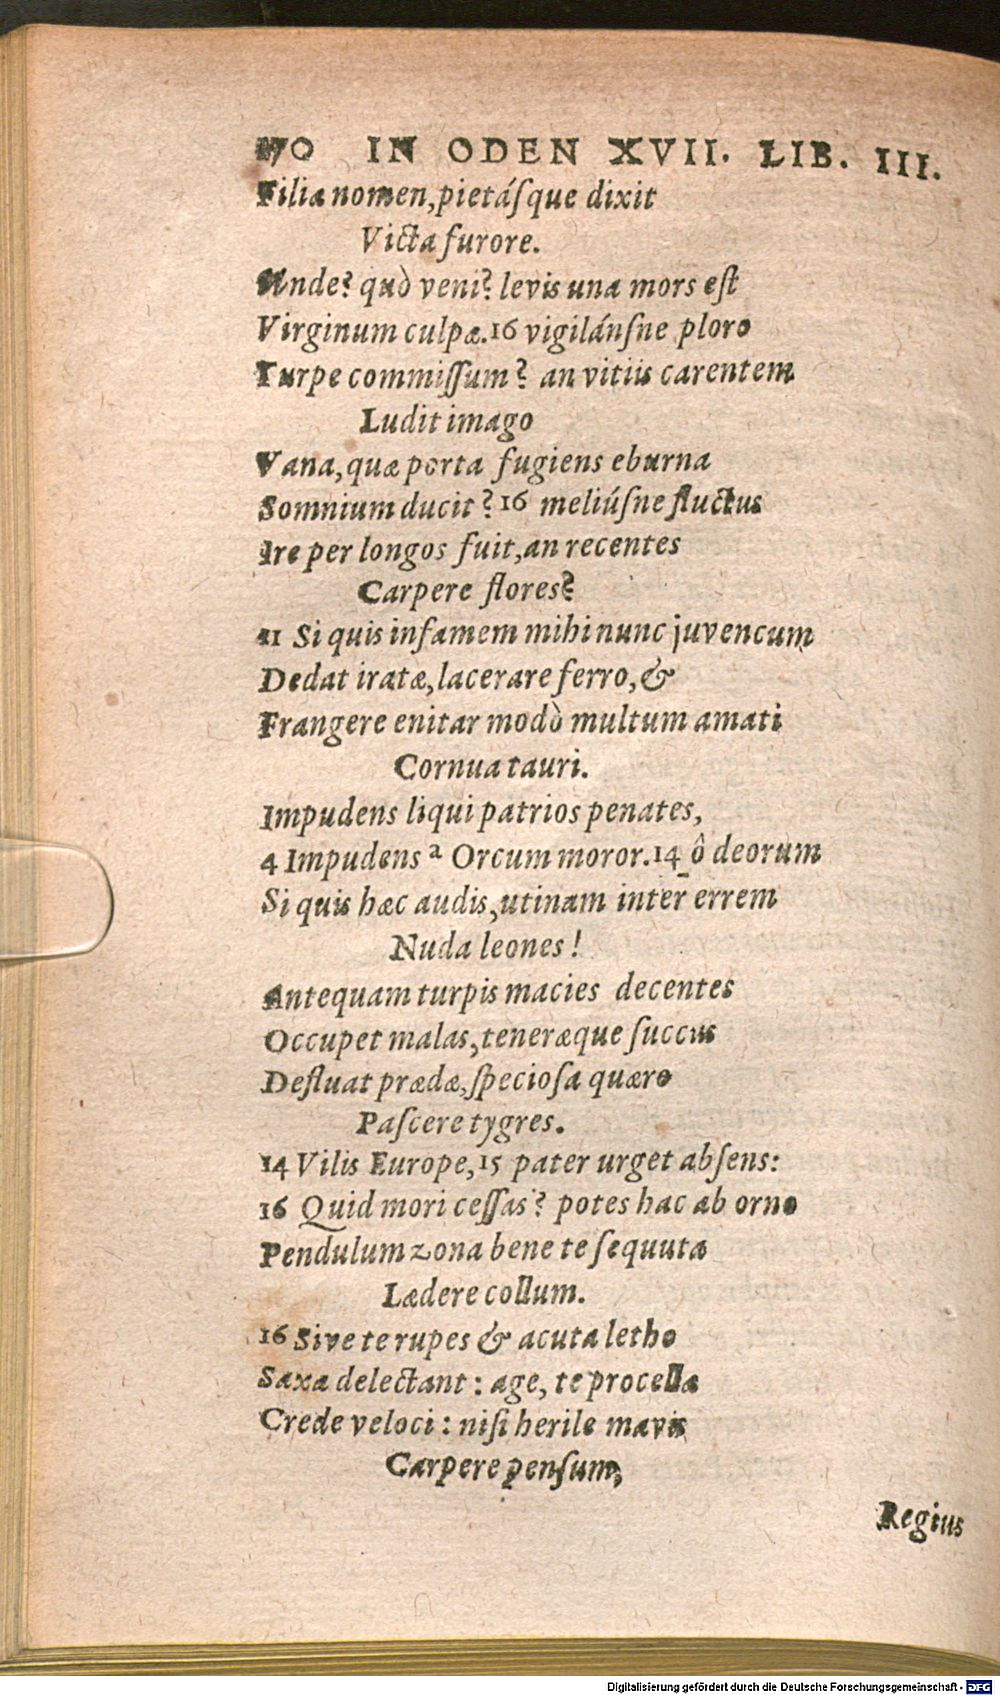 170 IN ODEN XVII. LIB. III.
Filia nomen, pietásque dixit
Victa furore.
Unde? quò veni? levis una mors est
Virginum culpæ. 16 vigilánsne ploro
Turpe commissum? an vitiis carentem
Ludit imago
Vana, quæ porta fugiens eburna
Somnium ducit? 16 meliúsne fluctus
Ire per longos fuit, an recentes
Carpere flores?
11 Si quis infamem mihi nunc juvencum
Dedat iratæ, lacerare ferro, &
Frangere enitar modò multum amati
Cornua tauri.
Impudens liqui patrios penates,
4 Impudens a Orcum moror. 14 ô deorum
Si quis hæc audis, utinam inter errem
Nuda leones!
Antequam turpis macies decentes
Occupet malas, teneræque succus
Defluat prædæ, speciosa quæro
Pascere tygres.
14 Vilis Europe, 15 pater urget absens:
16 Quid mori cessas? potes hac ab orno
Pendulum zona bene te sequuta
Lædere collum.
16 Sive te rupes & acuta letho
Saxa delectant: age, te procella
Crede veloci: nisi herile mavis
Carpere pensum,
Regius
Digitalisierung gefördert durch die Deutsche Forschungsgemeinschaft - DFG